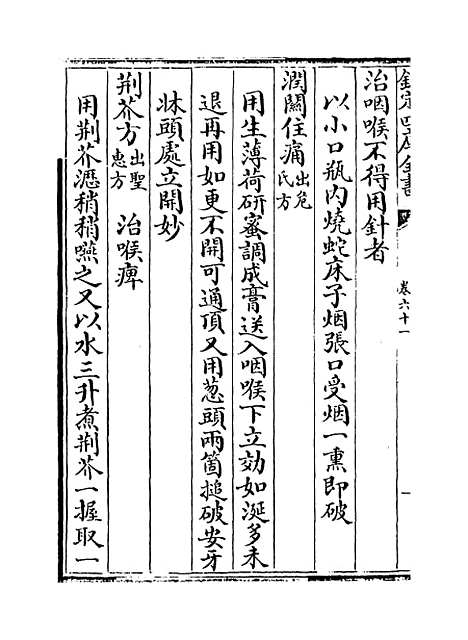 欽定四庫全書
卷六十一
治咽喉不得用針者
以小口瓶内燒蛇床子烟張口受烟一熏即破
潤關住痛出危氏方
用生薄荷研蜜調成膏送入咽喉下立効如涎多未
退再用如更不開可通頂又用葱頭兩箇搥破安牙
牀頭處立開妙
荆芥方出聖惠方 治喉痺
用荆芥瀝稍稍嚥之又以水三升煮荆芥一握取一